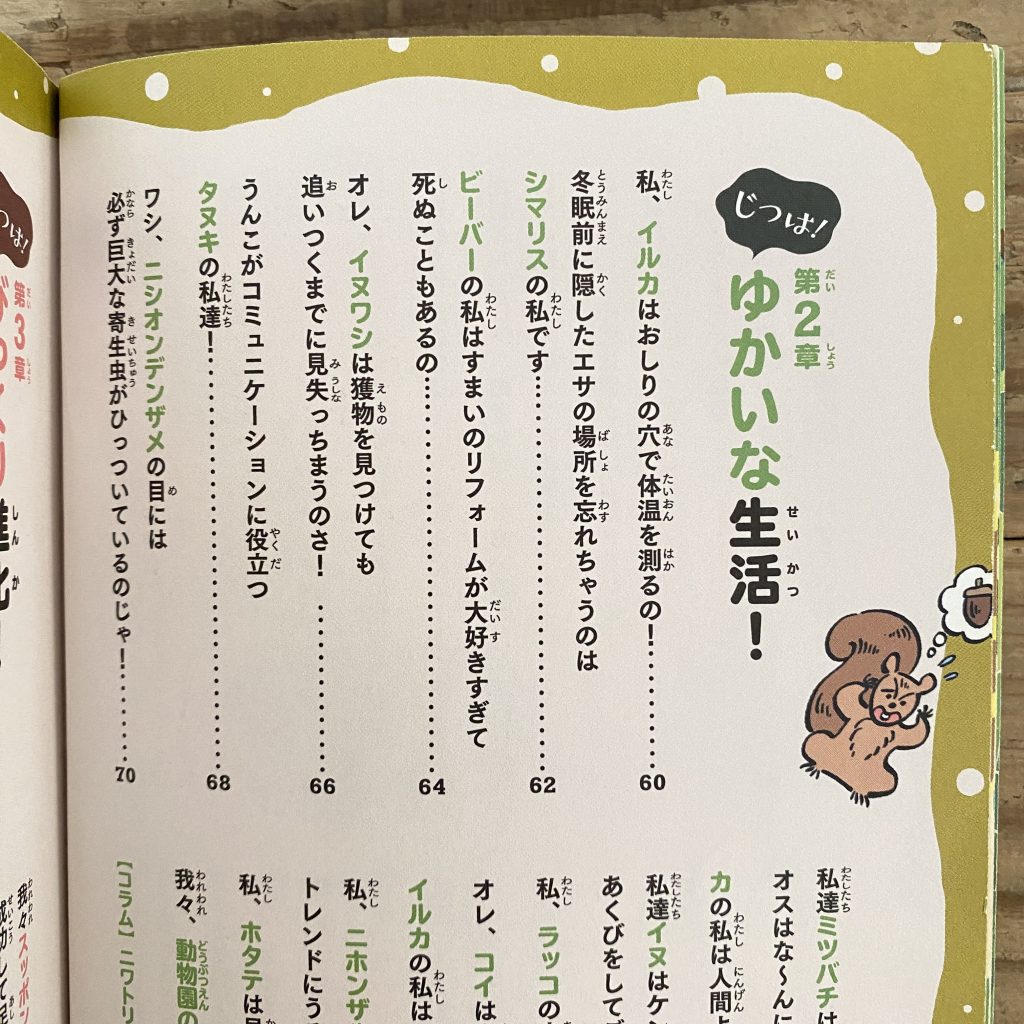 じつは!
第2章
ゆかいな生活!
私、イルカはおしりの穴で体温を測るの!……………60
冬眠前に隠したエサの場所を忘れちゃうのは
シマリスの私です……………62
ビーバーの私はすまいのリフォームが大好きすぎて
死ぬこともあるの……………64
オレ、イヌワシは獲物を見つけても
追いつくまでに見失っちまうのさ!……………66
うんこがコミュニケーションに役立つ
タヌキの私達!……………68
ワシ、ニシオンデンザメの目には
必ず巨大な寄生虫がひっついているのじゃ!……………70
私達ミツバチは
オスはな〜んに
カの私は人間
私達イヌはケン
あくびをして
私、ラッコの
オレ、コイは
イルカの私は
私、ニホンザ
トレンドにう
私、ホタテは
我々、動物園の
【コラム】ニワトリ
つは!
第3章
進化
我々スッポン
成功して